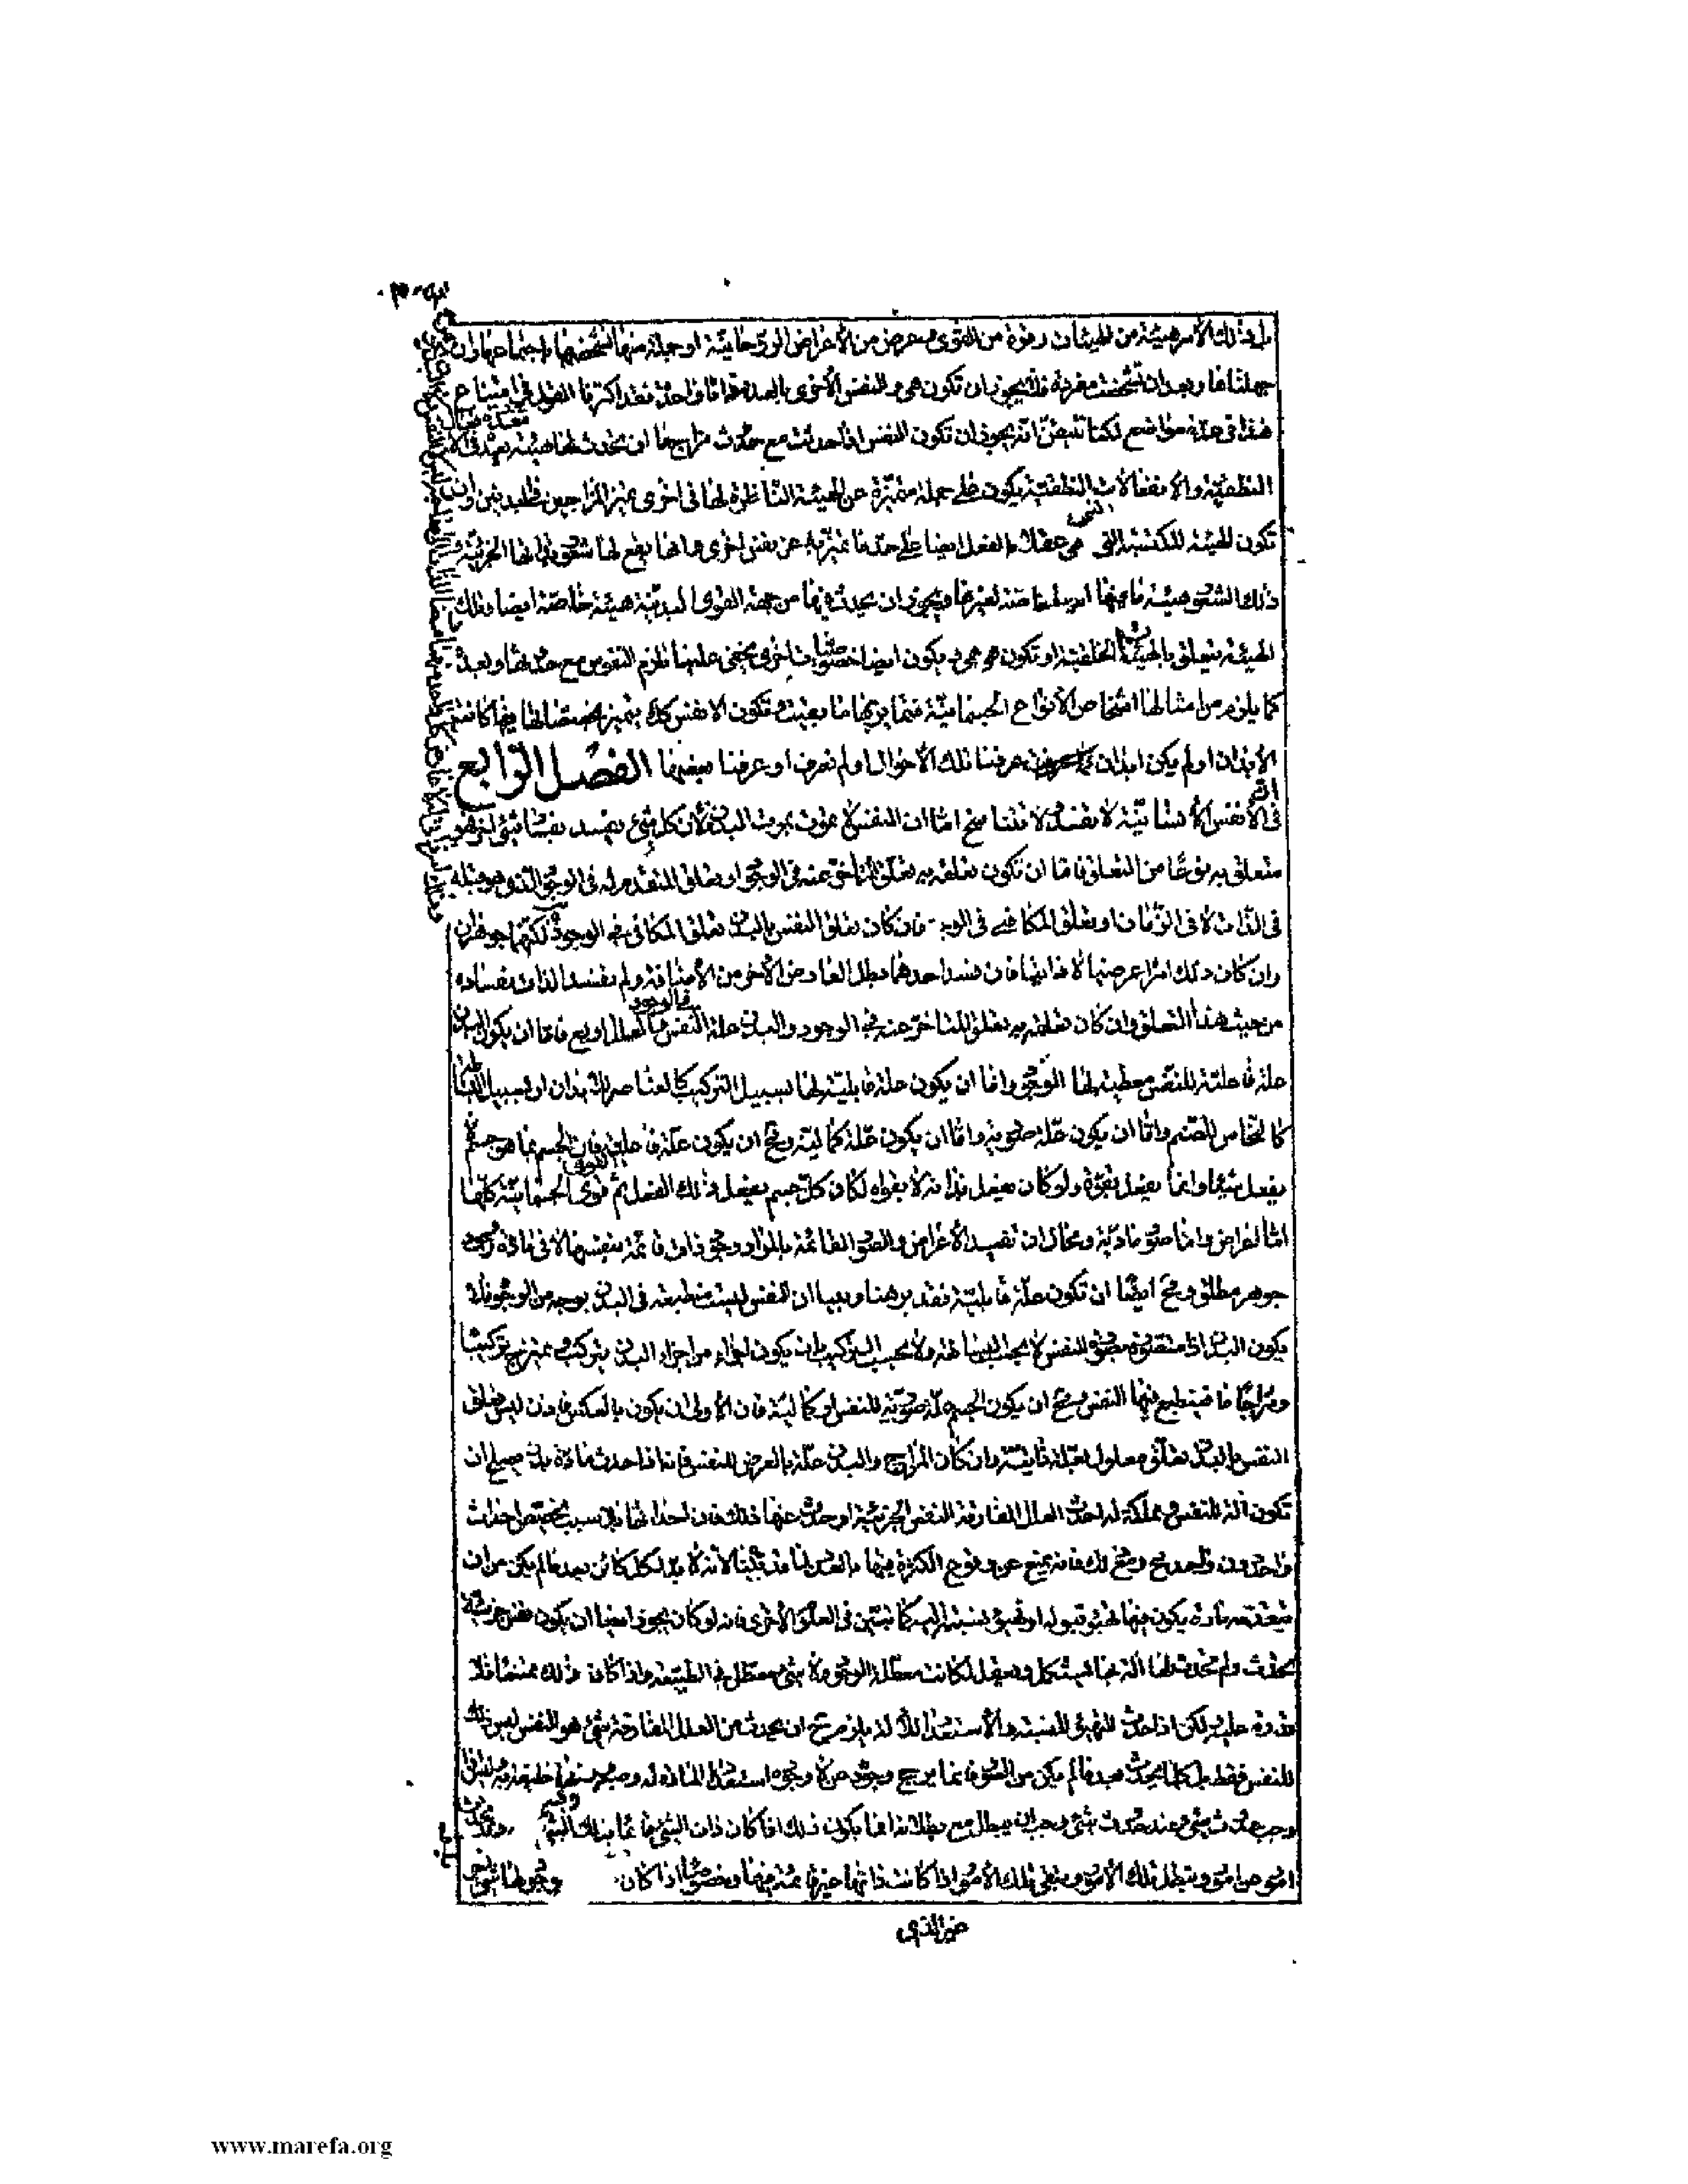 بل ذلك الأمر هيئة من الهيئات وقوة من القوى وعرض من الأعراض الروحانية او جملة منها تشخصها باجتماعها وان
جهلناها وبعد ان تشخصت مفردة فلا يجوز ان تكون هي والنفس الأخرى بالعدد ذاتا واحدة فقد اكثرنا القول في امتناع
هذا في عدة مواضع لكنا نتيقن انه يجوز ان تكون النفس اذا حدثت مع حدوث مزاج ما ان تحدث لها هيئة بعده في الأفعال
النطقية والانفعالات النطقية يكون على جملة متميزة عن الهيئة الناظرة لها في اخرى تميز المزاجين في البدنين وان
تكون الهيئة المكتسبة التي تسمى عقلا بالفعل ايضا على حد ما تميز به عن نفس اخرى وانها يقع لها شعور بذاتها الجزئية
ذلك الشعور هيئة ما فيها ايضا خاصة ليس لغيرها ويجوز ان يحدث فيها من جهة القوى البدنية هيئة خاصة ايضا وتلك
الهيئة يتعلق بالهيئات الخلقية او تكون هي هي ويكون ايضا خصوصيات اخرى يخفى علينا تلزم النفوس مع حدوثها وبعده
كما يلزم من امثالها اشخاص الأنواع الجسمانية فتتمايز بها ما بقيت وتكون الانفس كك يتميز بمخصصاتها فيها كانت
الأبدان او لم يكن ابدان عرفنا تلك الأحوال او لم نعرف او عرفنا بعضها الفصل الرابع
في ان الأنفس الأنسانية لا تفسد ولا تتناسخ اما ان النفس لا تموت بموت البدن فلأن كل شيء يفسد بفساد شيء اخر فهو
متعلق به نوعا من التعلق فاما ان تكون تعلقه به تعلق المتأخر عنه في الوجود او تعلق المتقدم له في الوجود الذي هو قبله
في الذات لا في الزمان او تعلق المكافي في الوجود فان كان تعلق النفس بالبدن تعلق المكافي في الوجود لكنهما جوهران
وان كان ذلك امرا عرضيا لا ذاتيا فان فسد احدهما بطل العارض الأخر من الأضافة ولم تفسد الذات بفساده
من حيث هذا التعلق وان كان تعلقه به تعلق المتاخر عنه في الوجود والبدن علة النفس في الوجود والعلل اربع فاما ان يكون البدن
علة فاعلية للنفس معطية لها الوجود واما ان يكون علة قابلية لها بسبيل التركيب كالعناصر للأبدان او بسبيل البساطة
كالنحاس للصنم واما ان يكون علة صورية واما ان يكون علة كمالية ومح ان يكون علة فاعلية فان الجسم بما هو جسم
يفعل شيئا وانما يفعل بقوة ولو كان يفعل بذاته لا بقواه لكان كل جسم يفعل ذلك الفعل ثم القوى الجسمانية كلها
اما اعراض واما صور مادية ومحال ان تفيد الأعراض والصور القائمة بالمواد وجود ذات قائمة بنفسها لا في مادة ووجود
جوهر مطلق ومح ايضا ان تكون علة قابلية فقد برهنا وبينا ان النفس ليست منطبعة في البدن بوجه من الوجوه فلا
يكون البدن اذا متصورا بصورة النفس لا بحسب البساطة ولا بحسب التركيب بان يكون اجزاء من اجزاء البدن يتركب ويمتزج تركيبا
ومزاجا ما فينطبع فيها النفس ومح ان يكون الجسم علة صورية للنفس او كمالية فان الأولى ان يكون بالعكس فاذن ليس تعلق
النفس بالبدن تعلق معلول بعلة ذاتية وان كان المزاج والبدن علة بالعرض للنفس فانه اذا حدث مادة بدن يصلح ان
تكون آلة للنفس ومملكة له احدث العلل المفارقة النفس الجزئية او حدث عنها ذلك فان احداثها بلا سبب يخصص احداث
واحد دون واحد مح ومع ذلك فانه يمنع عن وقوع الكثرة فيها بالعدد لما قد بيناه لانه لا بد لكل كائن بعد ما لم يكن من ان
يتقدمه مادة يكون فيها تهيؤ قبوله او تهيؤ نسبة اليه كما تبين في العلوم الأخرى فانه لو كان يجوز ايضا ان يكون نفس جزئية
تحدث ولم تحدث لها آلة بها تستكمل وتفعل لكانت معطلة الوجود ولا شيء معطل في الطبيعة واذا كان ذلك ممتنعا فلا
قدرة عليه ولكن اذا حدث التهيؤ للنسبة والأستعداد للآلة يلزم ح ان يحدث من العلل المفارقة شيء هو النفس وليس ذلك
للنفس فقط بل كل ما يحدث بعد ما لم يكن من الصور فانما يرجح وجوده عن لا وجوده استعداد المادة له وصيرورتها خليقة به وليس اذا
وجب حدوث شيء عند حدوث شيء وجب ان يبطل مع بطلانه انما يكون ذلك اذا كان ذات الشيء قائما بذلك الشيء وفيه وقد تحدث
امور عن امور وتبطل تلك الأمور وتبقى تلك الأمور اذا كانت ذاتها غير قائمة فيها وخصوصا اذا كان وجودها شيء اخر
غير الذي
www.marefa.org